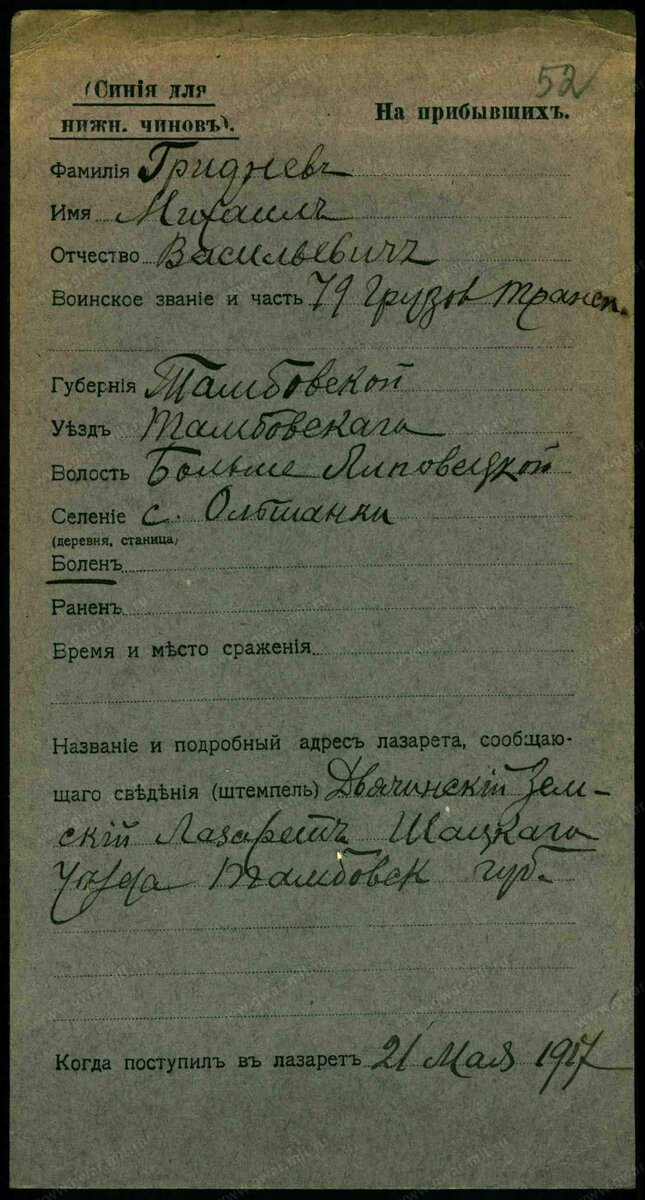 52
(Синія для
нижн. чиновъ).
На прибывшихъ.
Фамилія Гридневъ
Имя Михаилъ
Отчество Васильевичъ
Воинское званіе и часть 79 Грузов трансп.
Губернія Тамбовской
Уѣздъ Тамбовскаго
Волость Больше Липовецкой
Селеніе с. Ольшанки
(деревня, станица)
Боленъ
Раненъ
Время и мѣсто сраженія
Названіе и подробный адресъ лазарета, сообщаю-
щаго свѣдѣнія (штемпель) Зем-
скій Лазаретъ Шацкаго
Уѣзда Тамбовск губ.
Когда поступилъ въ лазаретъ 21 Мая 1917